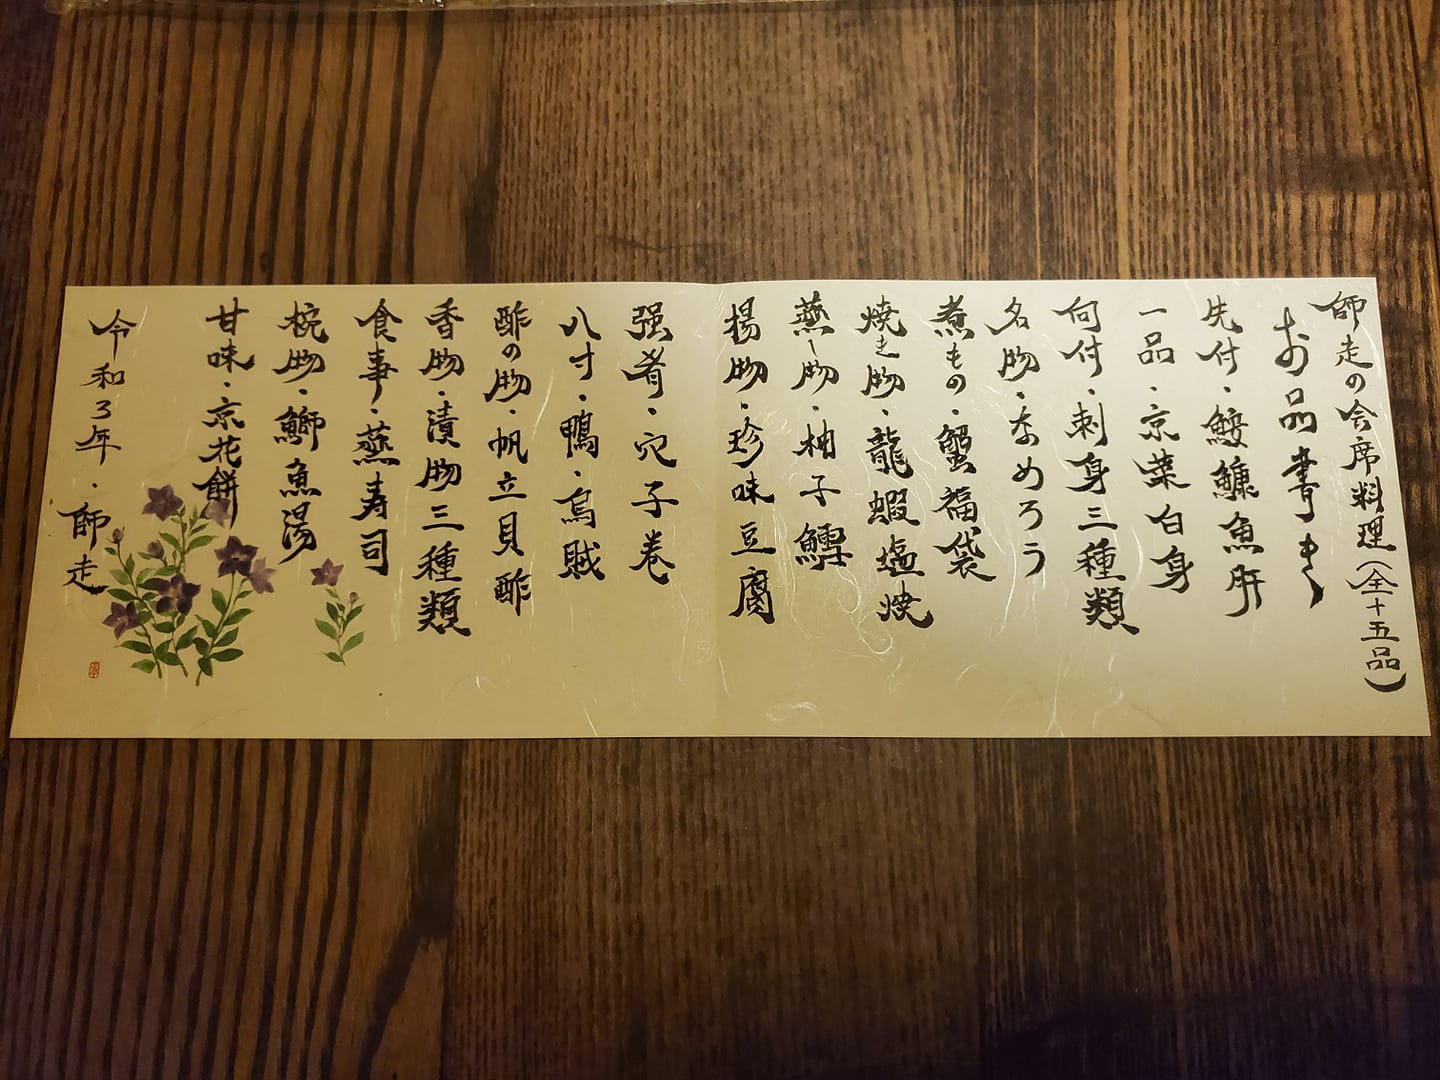 師走の会席料理(全十五品)
お品書き
先付・鮟鱇魚肝
一品・京菜白身
向付・刺身三種類
名物・なめろう
煮もの・蟹福袋
焼き物・龍蝦塩焼
蒸し物・柚子鱈
揚物・珍味豆腐
强肴・穴子巻
八寸・鴨・烏賊
酢の物・帆立貝酢
香物・漬物三種類
食事・蒸寿司
椀物・鰤魚湯
甘味・京花餅
令和3年・師走